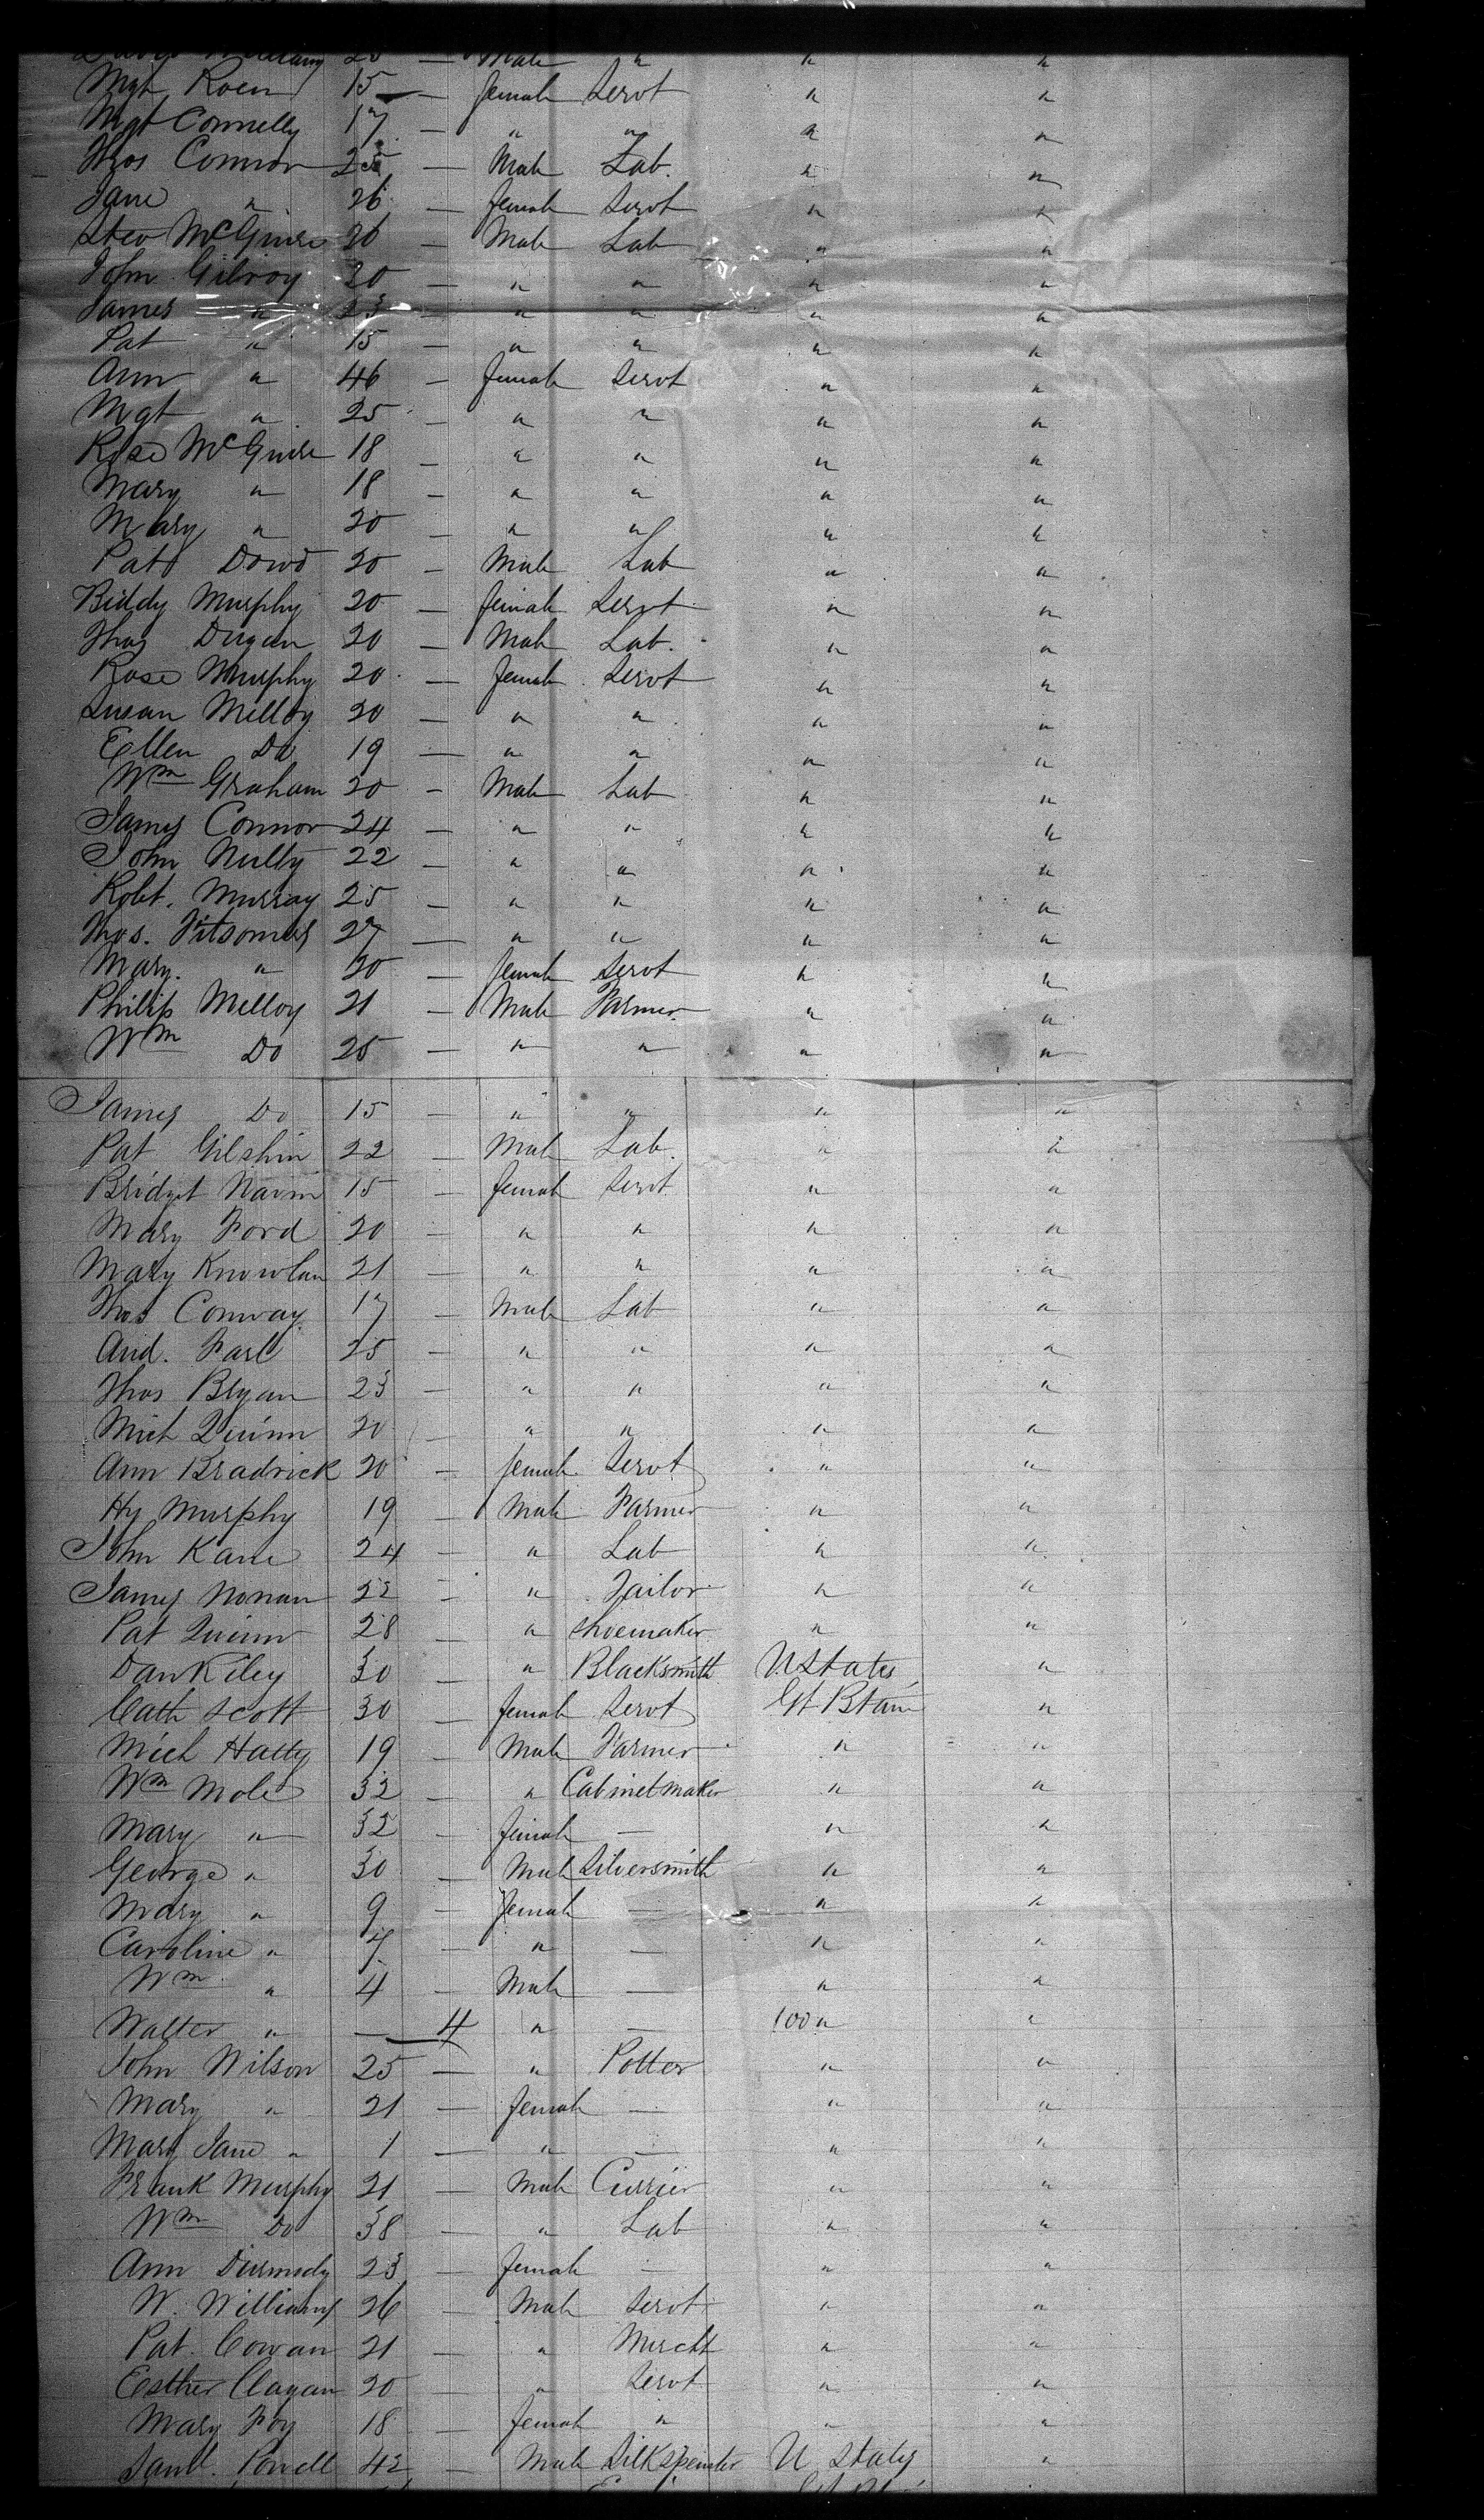 20 — Male " " "
Mgt Roen 15 — female Servt " "
Mgt Connelly 17 — " " " "
Thos Connor 25 — Male Lab. " "
Jane " 26 — female Servt " "
McGuire 26 — Male Lab " "
John Gilroy 20 — " " " "
James " 23 — " " " "
Pat " 15 — " " " "
Ann " 46 — female Servt " "
Mgt " 25 — " " " "
Rose McGuire 18 — " " " "
Mary " 18 — " " " "
Mary " 20 — " " " "
Pat Dowd 20 — Male Lab " "
Biddy Murphy 20 — female Servt " "
Thos Dugan 20 — Male Lab. " "
Rose Murphy 20 — female Servt " "
Susan Melloy 20 — " " " "
Ellen Do 19 — " " " "
Wm Graham 20 — Male Lab " "
James Connor 24 — " " " "
John Nulty 22 — " " " "
Robt. Murray 25 — " " " "
Thos. Fitsomes 27 — " " " "
Mary. " 20 — female Servt " "
Phillip Melloy 21 — Male Farmer " "
Wm Do 25 — " " " "
James Do 15 — " " " "
Pat Gilshin 22 — Male Lab. " "
Bridget Navin 15 — female Servt " "
Mary Ford 20 — " " " "
Mary Knowlan 21 — " " " "
Thos Conway 17 — Male Lab " "
And. Farl 25 — " " " "
Thos Bryan 23 — " " " "
Mich Quinn 20 — " " " "
Ann Bradrick 20 — female Servt " "
Hy Murphy 19 — Male Farmer " "
John Kane 24 — " Lab " "
James Nonan 22 — " Tailor " "
Pat Quinn 28 — " Shoemaker " "
Dan Kiley 30 — " Blacksmith U States "
Cath Scott 30 — female Servt Gt Btain "
Mich Hatty 19 — Male Farmer " "
Wm Mole 32 — " Cabinetmaker " "
Mary " 32 — female — " "
George " 30 — Male Silversmith " "
Mary " 9 — female — " "
Caroline " 7 — " — " "
Wm " 4 — Male — " "
Walter " — 4 " — 100 " "
John Wilson 25 — " Potter " "
Mary " 21 — female — " "
Mary Jane " 1 — " — " "
Frank Murphy 21 — Male Currier " "
Wm Do 38 — " Lab " "
Ann Diurmidy 23 — female — " "
W. Williams 26 — Male Servt " "
Pat. Cowan 21 — " Mercht " "
Esther Clagan 20 — " Servt " "
Mary Foy 18 — female " " "
Saml. Powell 42 — Male U States "